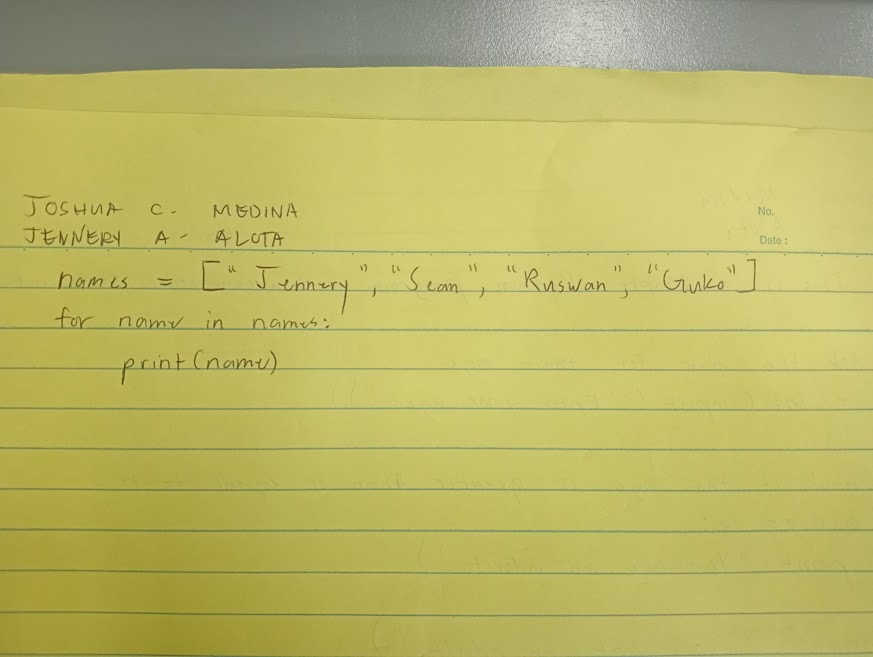 JOSHUA C. MEDINA
No.
JENNERY A. ALOTA
Date :
names = ["Jennery", "Sean", "Ruswan", "Guko"]
for name in names:
print(name)